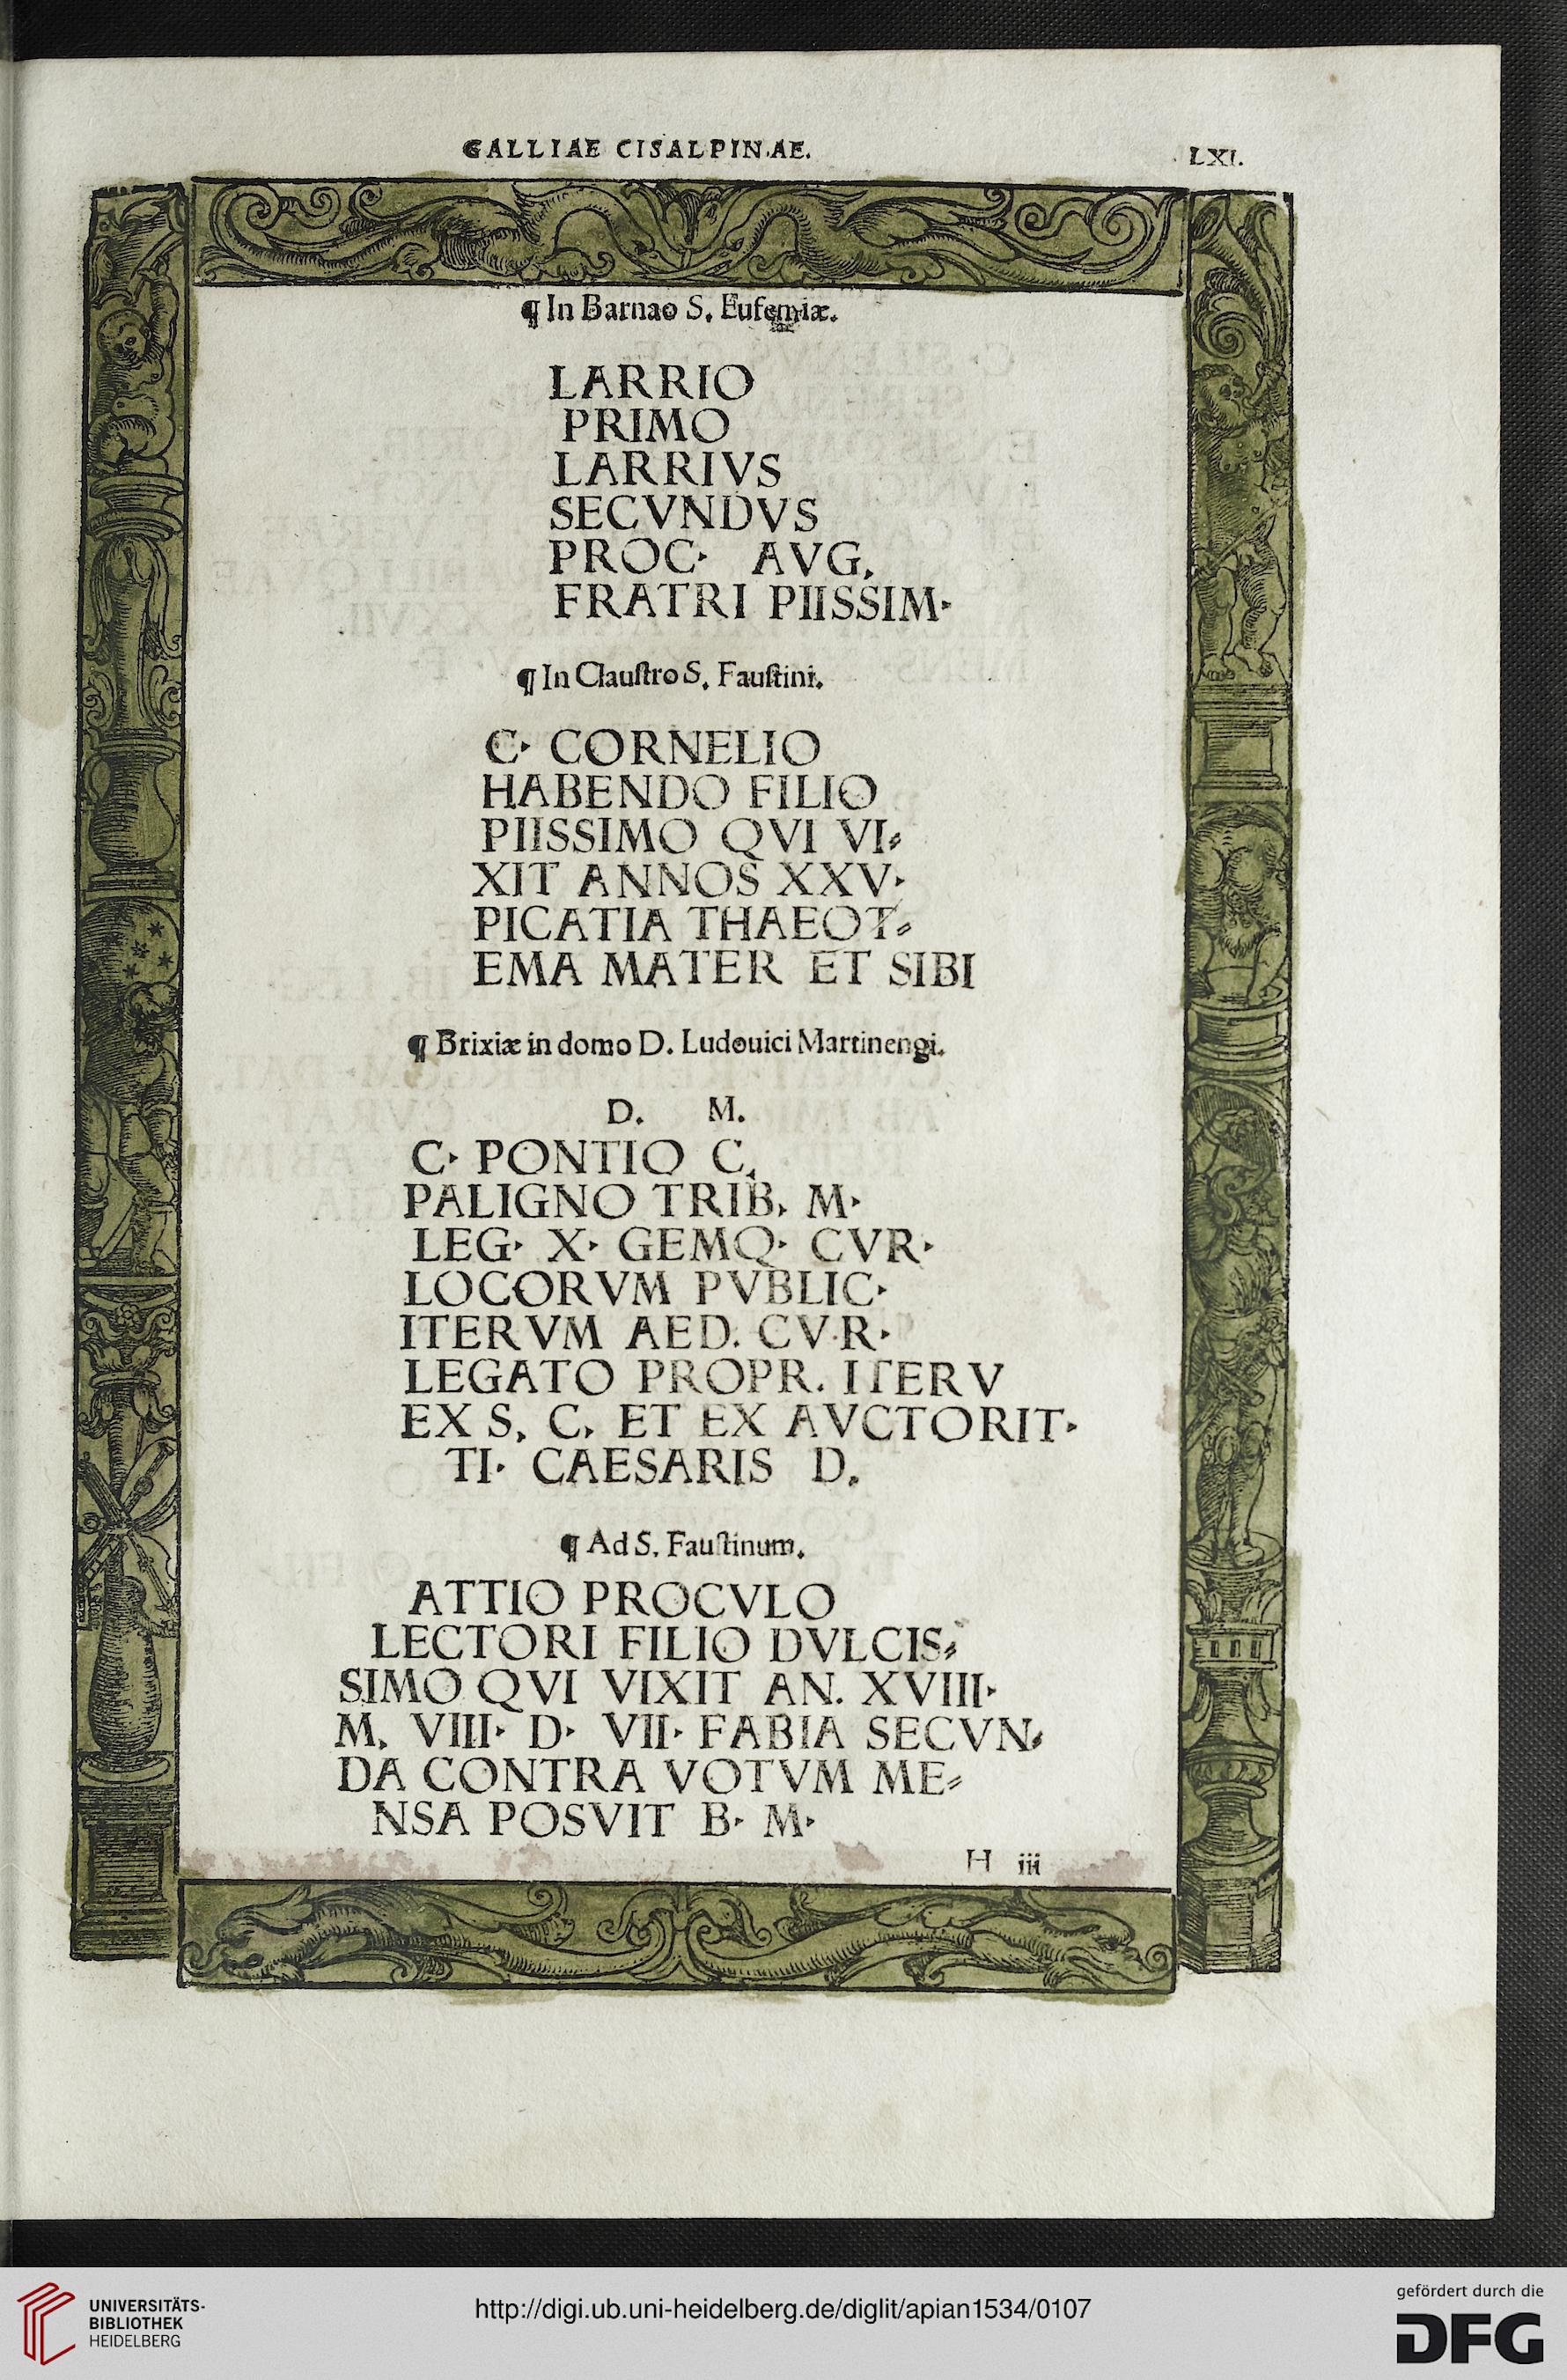 GALLIAE CISALPINAE.
LXI.
¶ In Barnao S. Eufemiæ.
LARRIO
PRIMO
LARRIVS
SECVNDVS
PROC· AVG.
FRATRI PIISSIM·
¶ In Clauſtro S. Fauſtini.
C· CORNELIO
HABENDO FILIO
PIISSIMO QVI VI⸗
XIT ANNOS XXV·
PICATIA THAEOT⸗
EMA MATER ET SIBI
¶ Brixiæ in domo D. Ludouici Martinengi.
D. M.
C· PONTIO C.
PALIGNO TRIB. M·
LEG· X· GEMQ· CVR·
LOCORVM PVBLIC·
ITERVM AED. CV·R·
LEGATO PROPR. ITERV
EX S. C. ET EX AVCTORIT·
TI· CAESARIS D.
¶ Ad S. Fauſtinum.
ATTIO PROCVLO
LECTORI FILIO DVLCIS⸗
SIMO QVI VIXIT AN. XVIII·
M. VIII· D· VII· FABIA SECVN⸗
DA CONTRA VOTVM ME⸗
NSA POSVIT B· M·
H iii
UNIVERSITÄTS-
BIBLIOTHEK
HEIDELBERG
http://digi.ub.uni-heidelberg.de/diglit/apian1534/0107
gefördert durch die
DFG